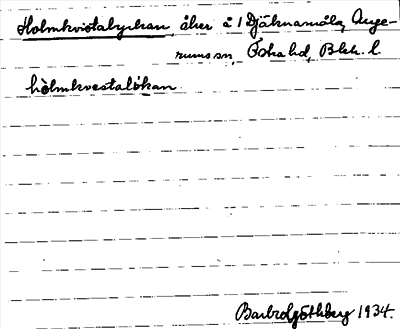 Holmkvistalyckan, åker å 1 Djäknamåla, Auge-
rums sn, Östra hd, Blek. l
hòlmkvestalökan.
Barbro Göthberg 1934.